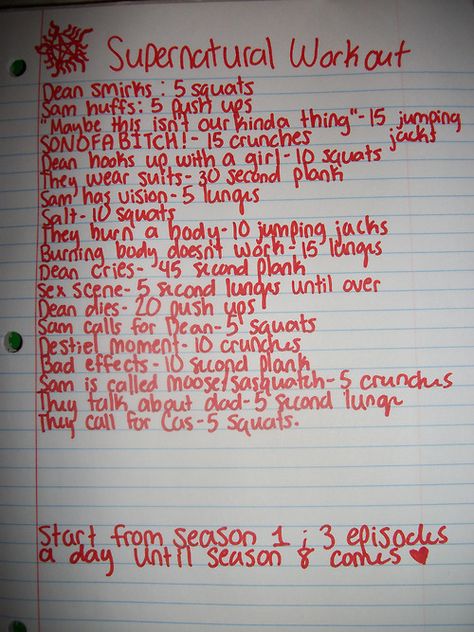 Supernatural Workout
Dean smirks: 5 squats
Sam huffs: 5 push ups
"Maybe this isn't our kinda thing"-15 jumping jacks
SONOFABITCH!-15 crunches
Dean hooks up with a girl-10 squats
They wear suits-30 second plank
Sam has vision-5 lunges
Salt-10 squats
They burn a body-10 jumping jacks
Burning body doesn't work-15 lunges
Dean cries-45 second plank
Sex scene-5 second lunges until over
Dean dies-20 push ups
Sam calls for Dean-5 squats
Destiel moment-10 crunches
Bad effects-10 second plank
Sam is called moose/sasquatch-5 crunches
They talk about dad-5 second lunge
They call for Cas-5 squats.
Start from season 1 ; 3 episodes
a day until season 8 comes ♥